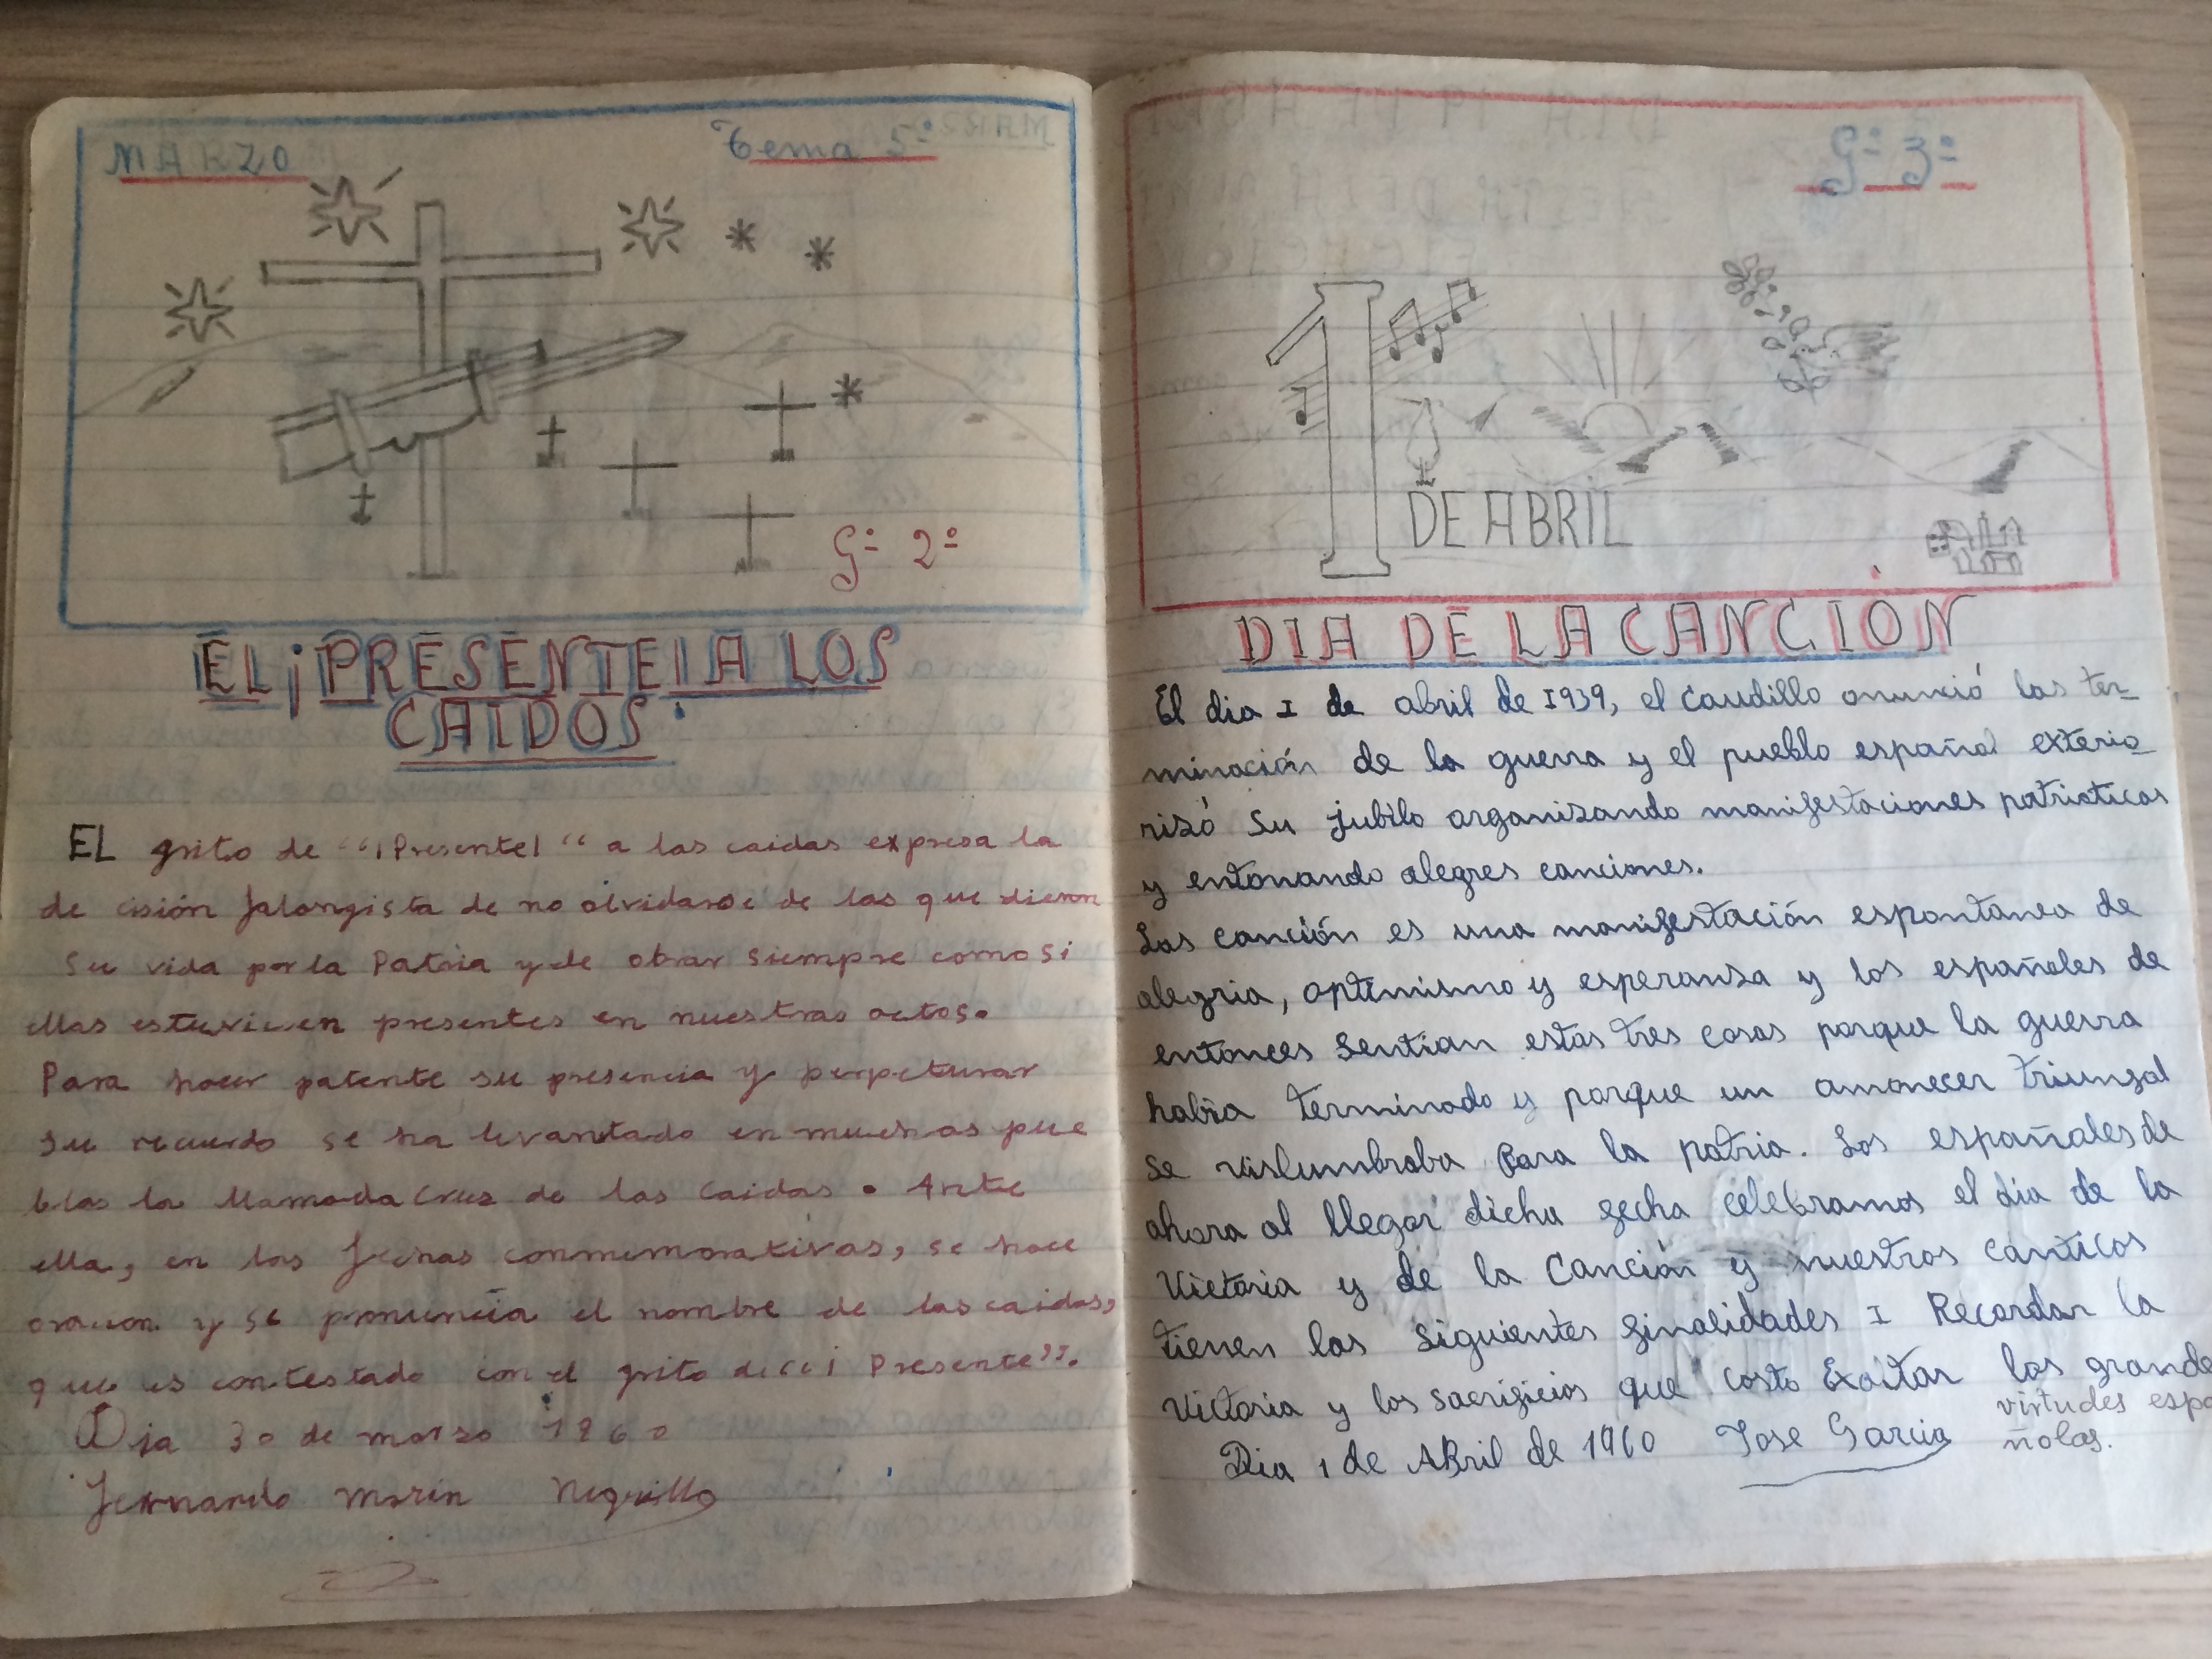 MARZO
Tema 5º
Gº 2º
EL ¡PRESENTE! A LOS
CAIDOS
EL grito de "¡Presente!" a los caidos expresa la
de cisión falangista de no olvidarse de los que dieron
su vida por la Patria y de obrar siempre como si
ellos estuviesen presentes en nuestros actos.
Para hacer patente su presencia y perpeturar
su recuerdo se ha levantado en muchos pue
blos la llamada Cruz de los Caidos. Ante
ella, en las fechas conmemorativas, se hace
oracion y se pronuncia el nombre de los caidos,
que es contestado con el grito de "¡Presente".
Dia 30 de marzo 1960
Fernando Marin
Gº 3º
1 DE ABRIL
DIA DE LA CANCIÓN
El dia I de abril de I939, el Caudillo anunció las ter-
minación de la guerra y el pueblo español exterio-
rizó su jubilo organizando manifestaciones patrioticas
y entonando alegres canciones.
Las canción es una manifestación espontánea de
alegria, optimismo y esperanza y los españoles de
entonces sentian estas tres cosas porque la guerra
habia terminado y porque un amanecer triunfal
se vislumbraba para la patria. Los españoles de
ahora al llegar dicha fecha celebramos el dia de la
Victoria y de la Canción y nuestros canticos
tienen las siguientes finalidades I Recordar la
Victoria y los sacrificios que costo Exaitar las grande
virtudes espa
ñolas.
Dia 1 de ABril de 1960 Jose Garcia